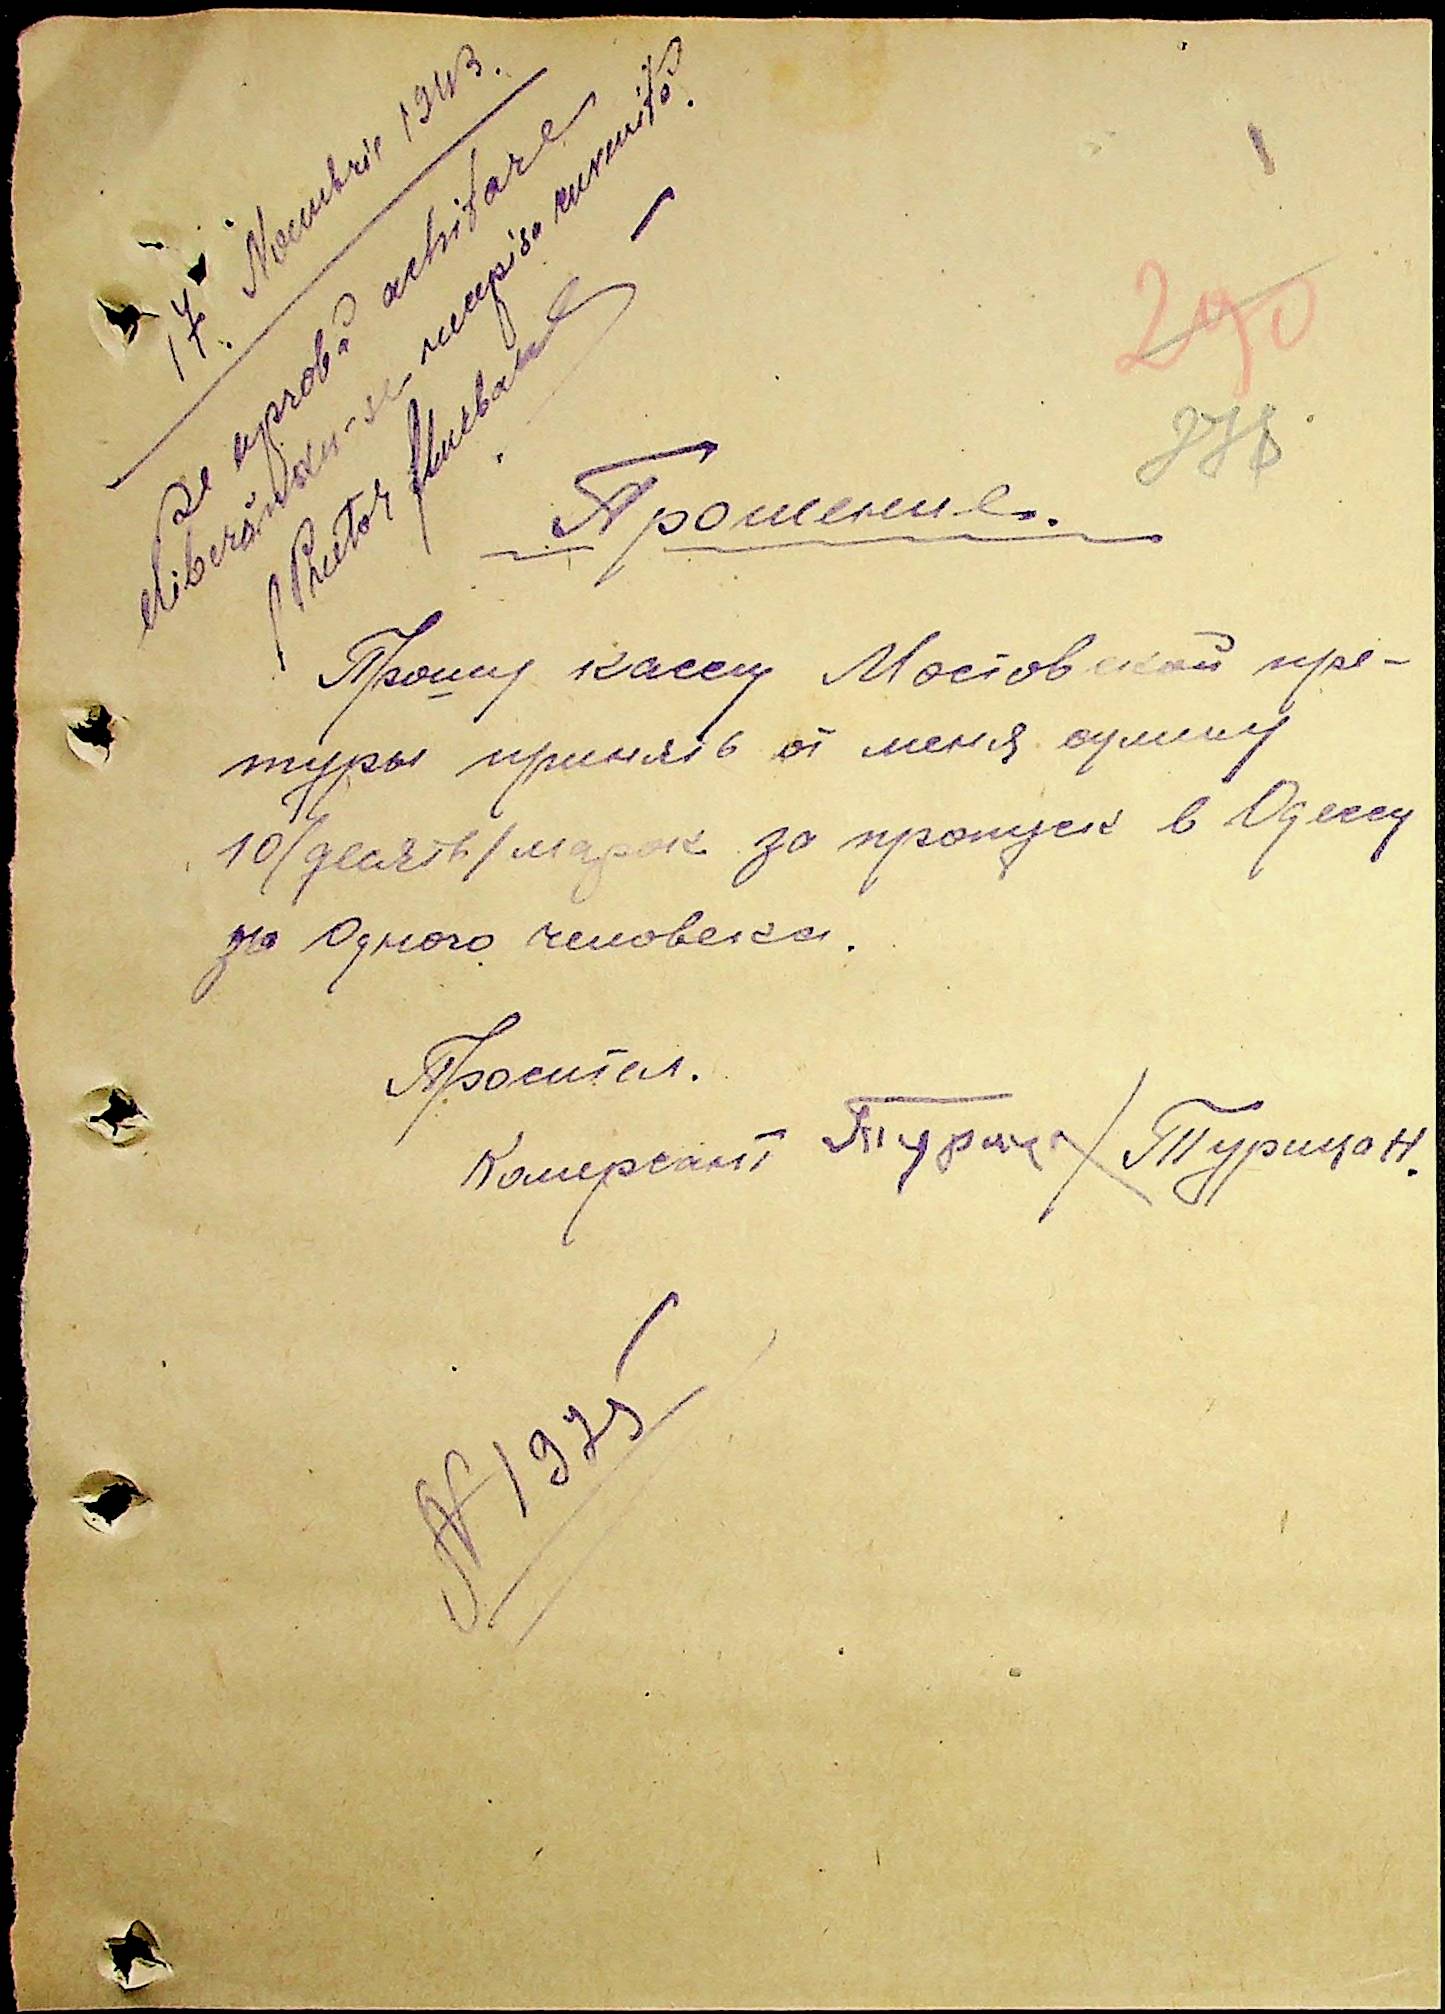 17. Noembrie 1943.
Se aprobă achitare
eliberându-se recepisa cuvenită.
Pretor
290
Прошение.
Прошу кассу Мостовской пре-
туры принять от меня сумму
10/десять/марок за пропуск в Одессу
за одного человека.
Проситель.
Комерсант Турица / Турица Н.
N 1975